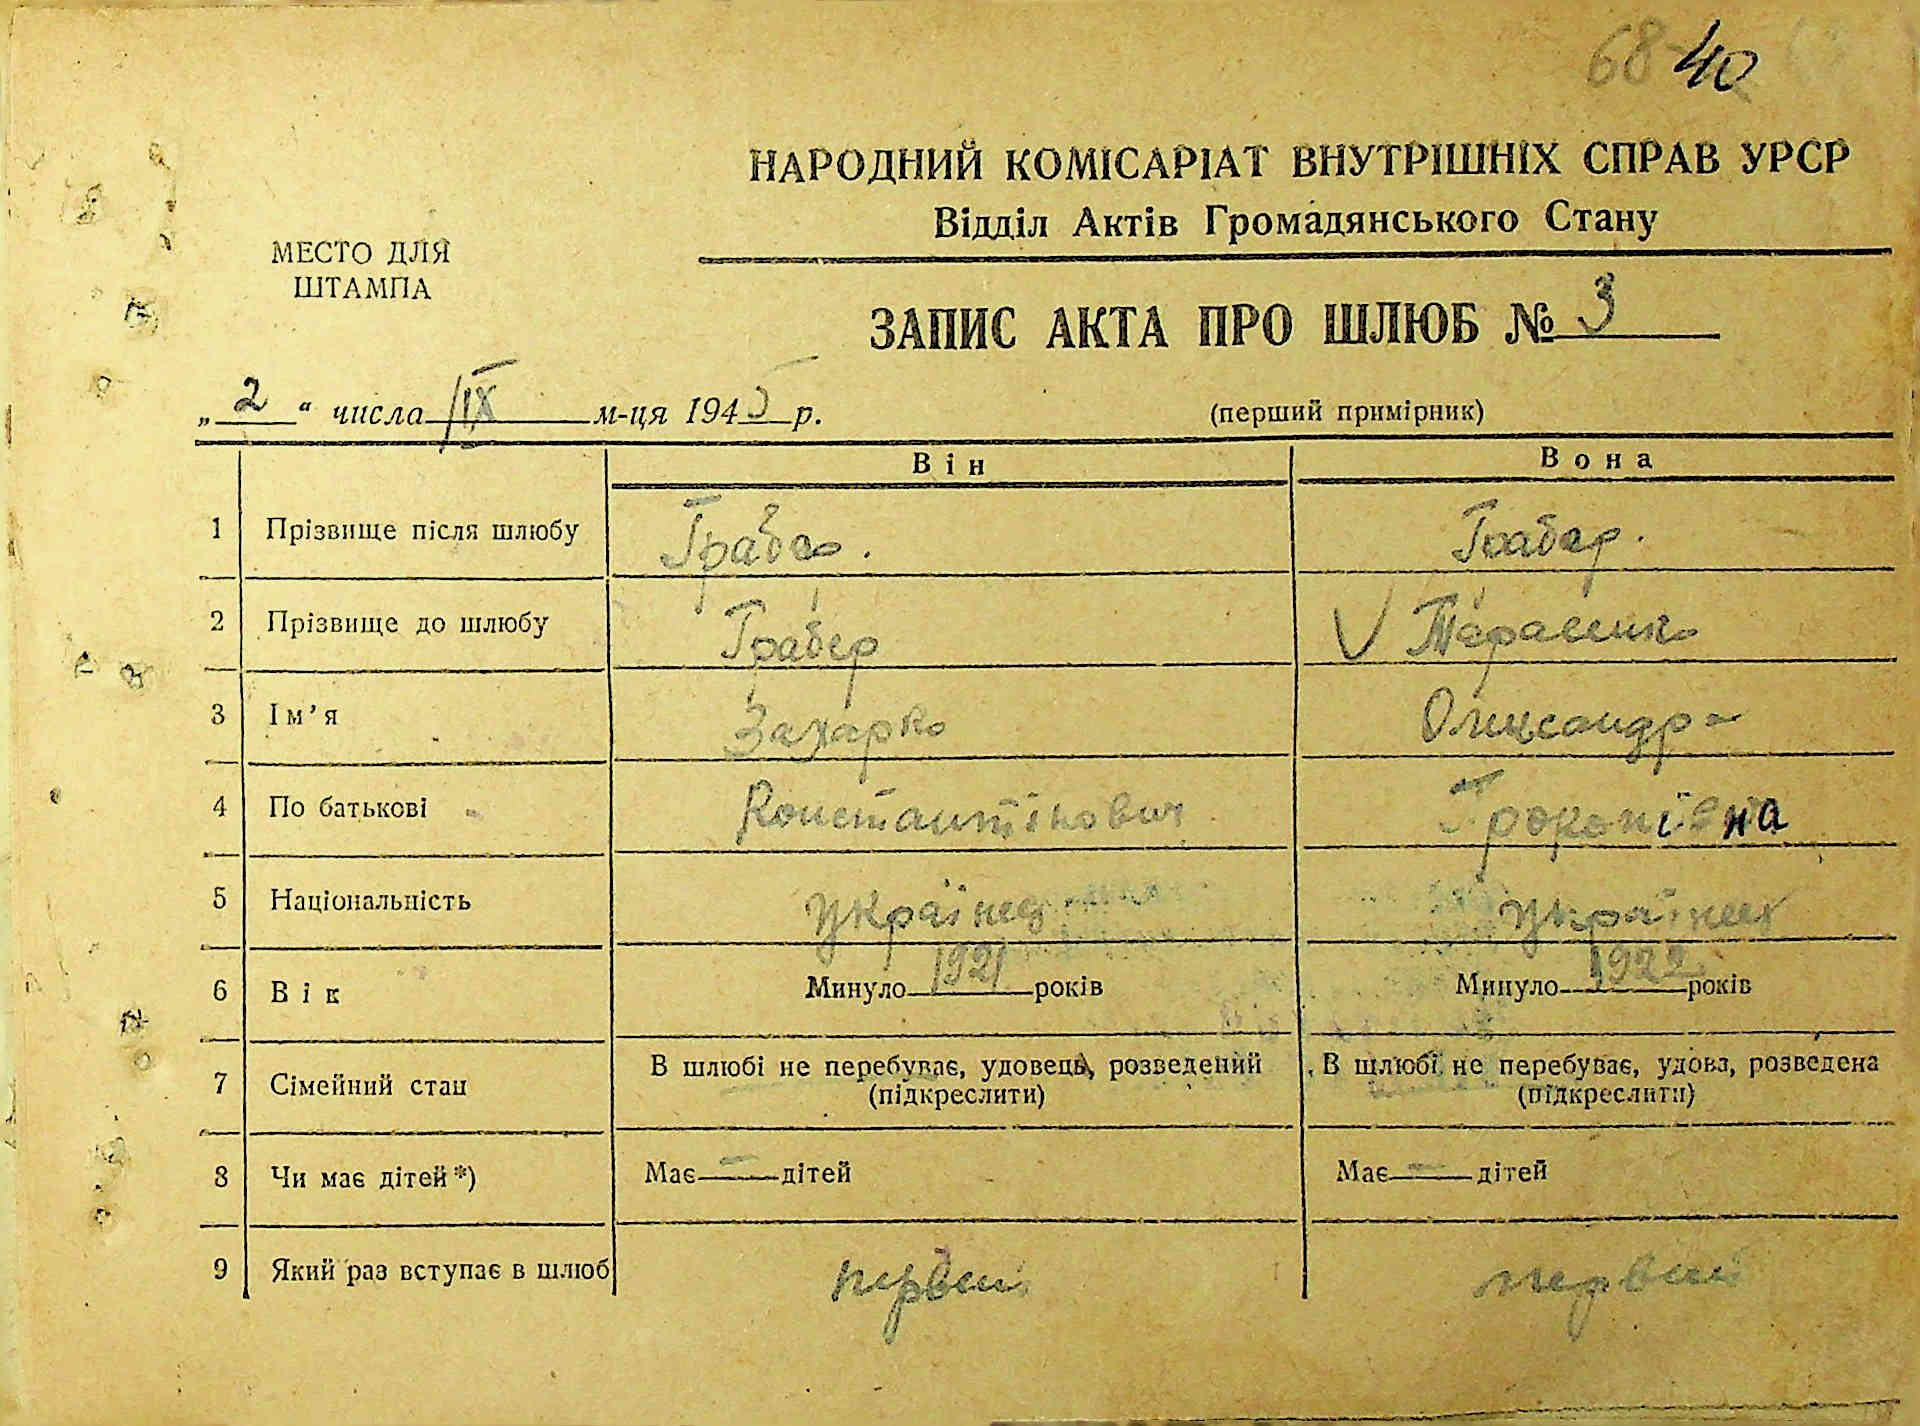 68 40
НАРОДНИЙ КОМІСАРІАТ ВНУТРІШНІХ СПРАВ УРСР
Відділ Актів Громадянського Стану
МЕСТО ДЛЯ
ШТАМПА
ЗАПИС АКТА ПРО ШЛЮБ № 3
„ 2 “ числа IX м-ця 1945 р.
(перший примірник)
Він Вона
1 Прізвище після шлюбу Грабер. Грабер.
2 Прізвище до шлюбу Грабер V Тарасенко
3 Ім’я Захарко Олександра
4 По батькові Константінович Прокопівна
5 Національність Українец Українка
6 Вік Минуло 1921 років Минуло 1922 років
7 Сімейний стан В шлюбі не перебуває, удовець, розведений В шлюбі не перебуває, удова, розведена
(підкреслити) (підкреслити)
8 Чи має дітей *) Має — дітей Має — дітей
9 Який раз вступає в шлюб первий первий